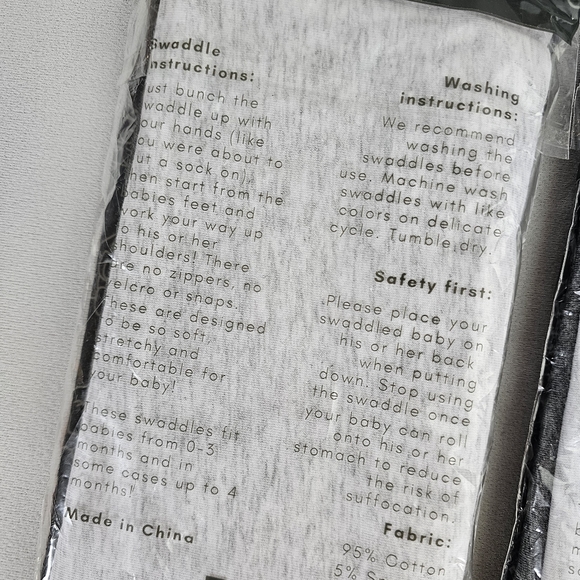 Swaddle
instructions:
just bunch the
waddle up with
our hands (like
you were about to
ut a sock on),
hen start from the
babies feet and
work your way up
o his or her
shoulders! There
are no zippers, no
velcro or snaps.
these are designed
to be so soft,
stretchy and
comfortable for
your baby!
These swaddles fit
babies from 0-3
months and in
some cases up to 4
months!
Made in China
Washing
instructions:
We recommend
washing the
swaddles before
use. Machine wash
swaddles with like
colors on delicate
cycle. Tumble dry.
Safety first:
Please place your
swaddled baby on
his or her back
when putting
down. Stop using
the swaddle once
your baby can roll
onto his or her
stomach to reduce
the risk of
suffocation.
Fabric:
95% Cotton
5%